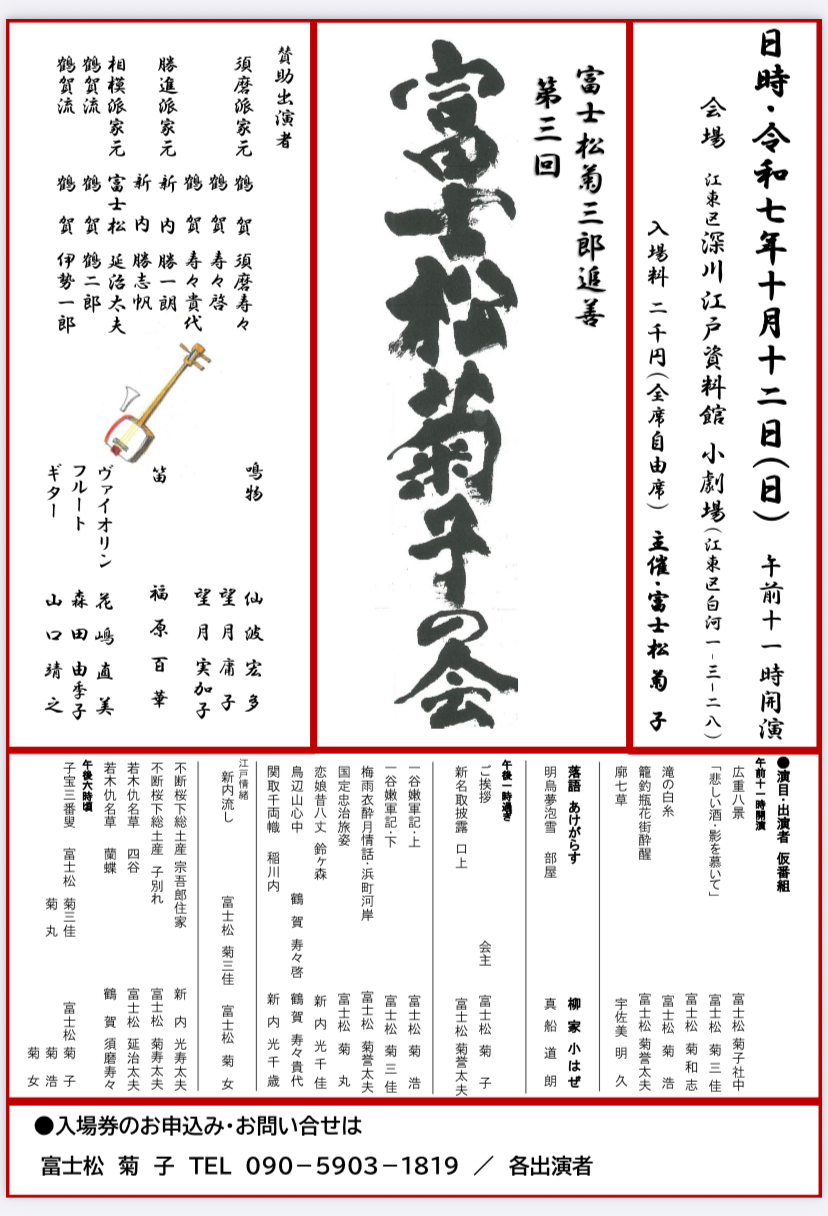 日時・令和七年十月十二日(日) 午前十一時開演
会場 江東区深川江戸資料館 小劇場(江東区白河一-三-二八)
入場料 二千円(全席自由席) 主催・富士松 菊 子
富士松菊三郎追善
第三回
富士松菊子の会
賛助出演者
須磨派家元 鶴 賀 須磨寿々
鶴 賀 寿々啓
鶴 賀 寿々貴代
勝進派家元 新 内 勝一朗
新 内 勝志帆
相模派家元 富士松 延治太夫
鶴賀流 鶴 賀 鶴二郎
鶴賀流 鶴 賀 伊勢一郎
鳴物 仙 波 宏 多
望 月 庸 子
望 月 実加子
笛 福 原 百 華
ヴァイオリン 花 嶋 直 美
フルート 森 田 由季子
ギター 山 口 靖 之
●演目・出演者 仮番組
午前十一時開演
広重八景 富士松 菊子社中
「悲しい酒・影を慕いて」 富士松 菊 三 佳
富士松 菊 和 志
滝の白糸 富士松 菊 浩
籠釣瓶花街酔醒 富士松 菊誉太夫
廓七草 宇佐美 明 久
落語 あけがらす 柳 家 小はぜ
明烏夢泡雪 部屋 真 船 道 朗
午後一時過ぎ
ご挨拶 会主 富士松 菊 子
新名取披露 口上 富士松 菊誉太夫
一谷嫩軍記・上 富士松 菊 浩
一谷嫩軍記・下 富士松 菊 三 佳
梅雨衣酔月情話・浜町河岸 富士松 菊誉太夫
国定忠治旅姿 富士松 菊 丸
恋娘昔八丈 鈴ヶ森 新 内 光 千 佳
鳥辺山心中 鶴 賀 寿々啓 鶴 賀 寿々貴代
関取千両幟 稲川内 新 内 光 千 歳
江戸情緒
新内流し 富士松 菊三佳 富士松 菊 女
不断桜下総土産 宗吾郎住家 新 内 光寿太夫
不断桜下総土産 子別れ 富士松 菊寿太夫
若木仇名草 四谷 富士松 延治太夫
若木仇名草 蘭蝶 鶴 賀 須磨寿々
午後六時頃
子宝三番叟 富士松 菊三佳 富士松 菊 子
菊 丸 菊 浩
菊 女
●入場券のお申込み・お問い合せは
富士松 菊 子 TEL 090-5903-1819 / 各出演者